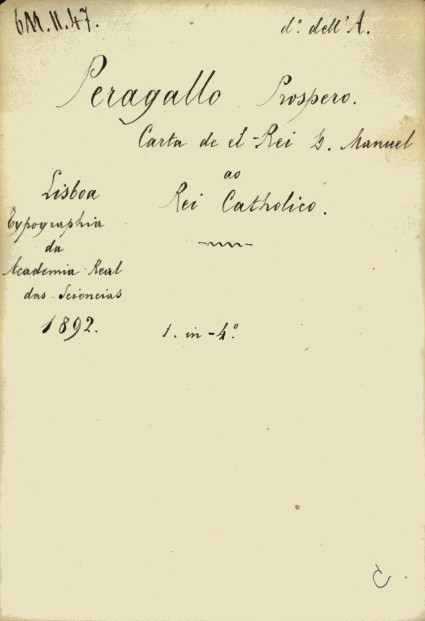 6M.II.47.
d.º dell'A.
Peragallo Prospero.
Carta de el-Rei D. Manuel
ao
Rei Catholico.
Lisboa
Typographia
da
Academia Real
das Sciencias
1892.
1. in-4º
C